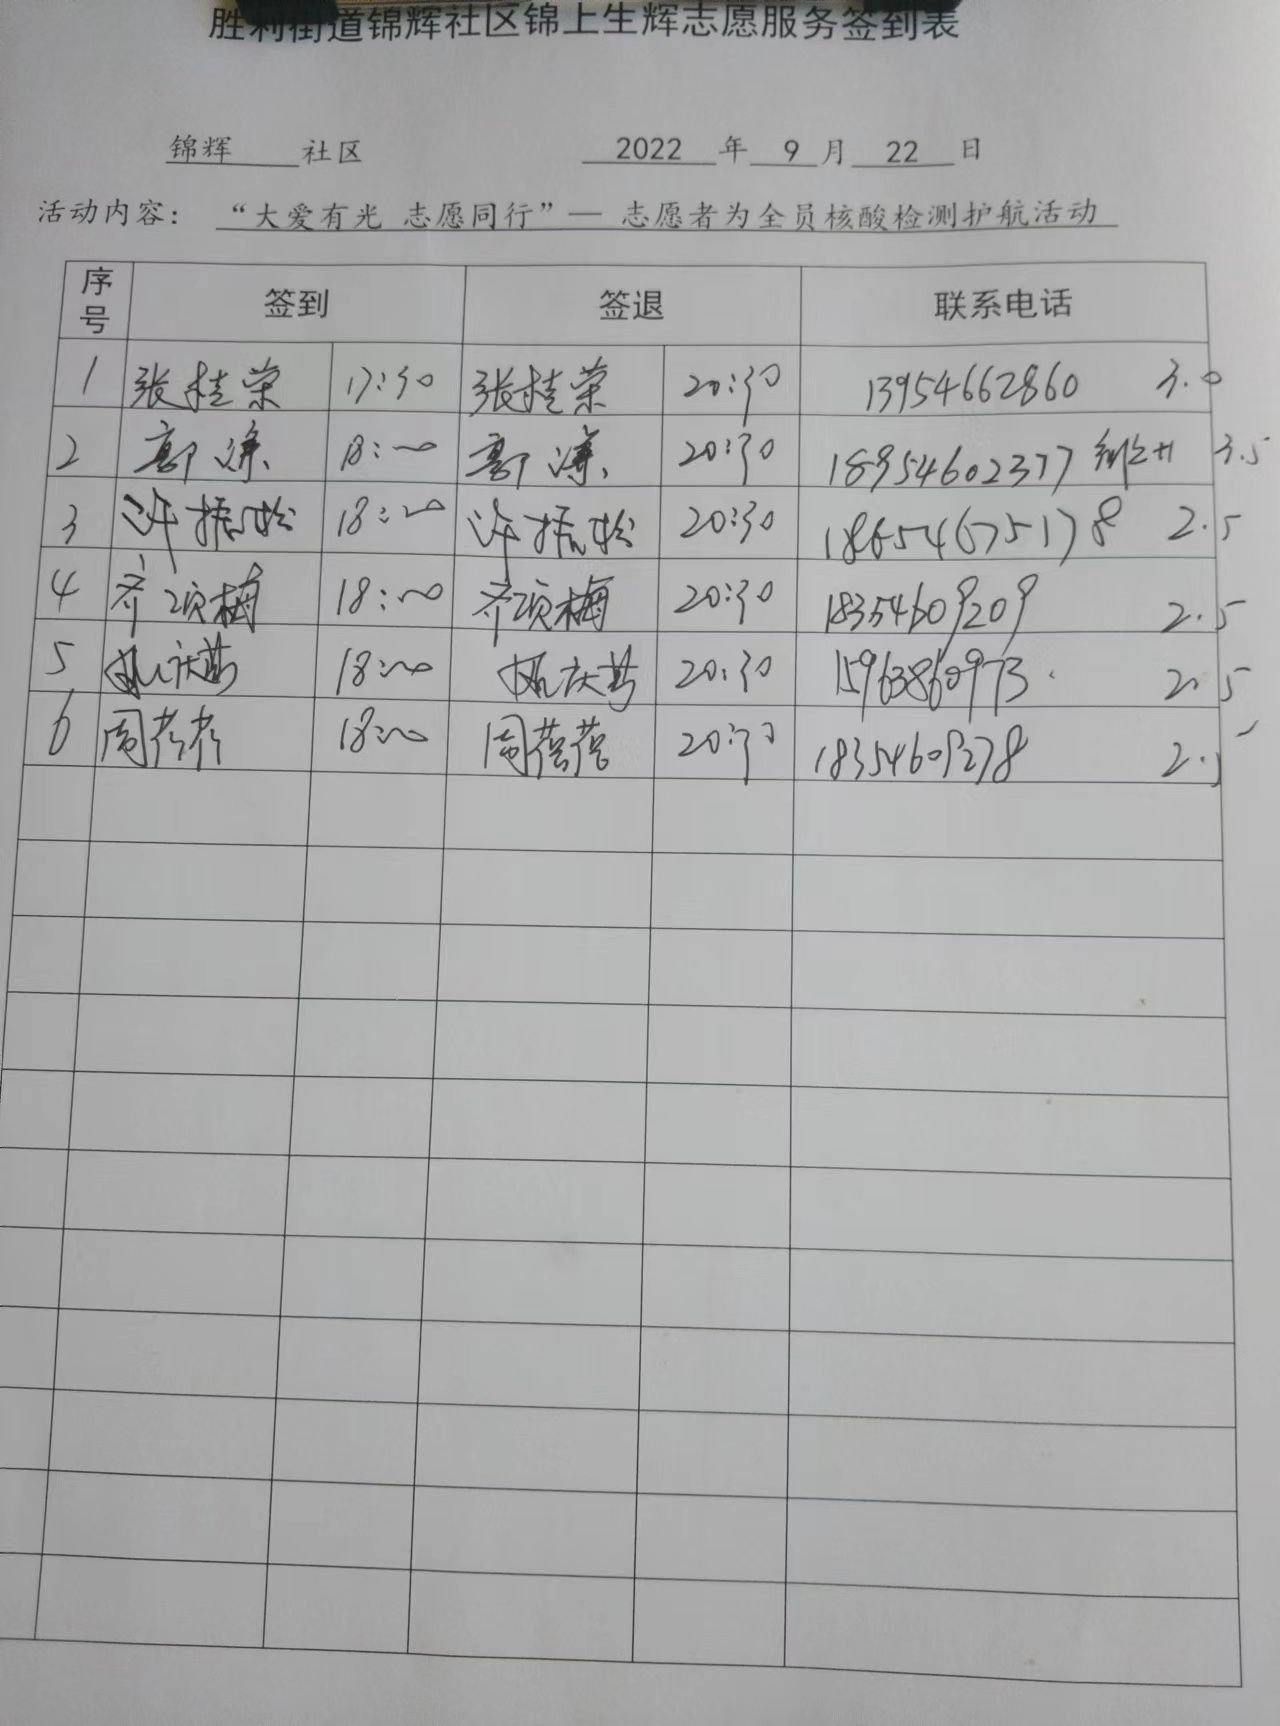 胜利街道锦辉社区锦上生辉志愿服务签到表
锦辉 社区 2022 年 9 月 22 日
活动内容： “大爱有光 志愿同行”— 志愿者为全员核酸检测护航活动
序号 签到 签退 联系电话
1 张桂荣 17:30 张桂荣 20:30 13954662860 3.0
2 郭 18:00 郭 20:30 18954602377 3.5
3 许振松 18:00 许振松 20:30 18654675178 2.5
4 齐项梅 18:00 齐项梅 20:30 18354609209 2.5
5 18:00 20:30 15963860973 2.5
6 周蓓蓓 18:00 周蓓蓓 20:30 18354609278 2.5